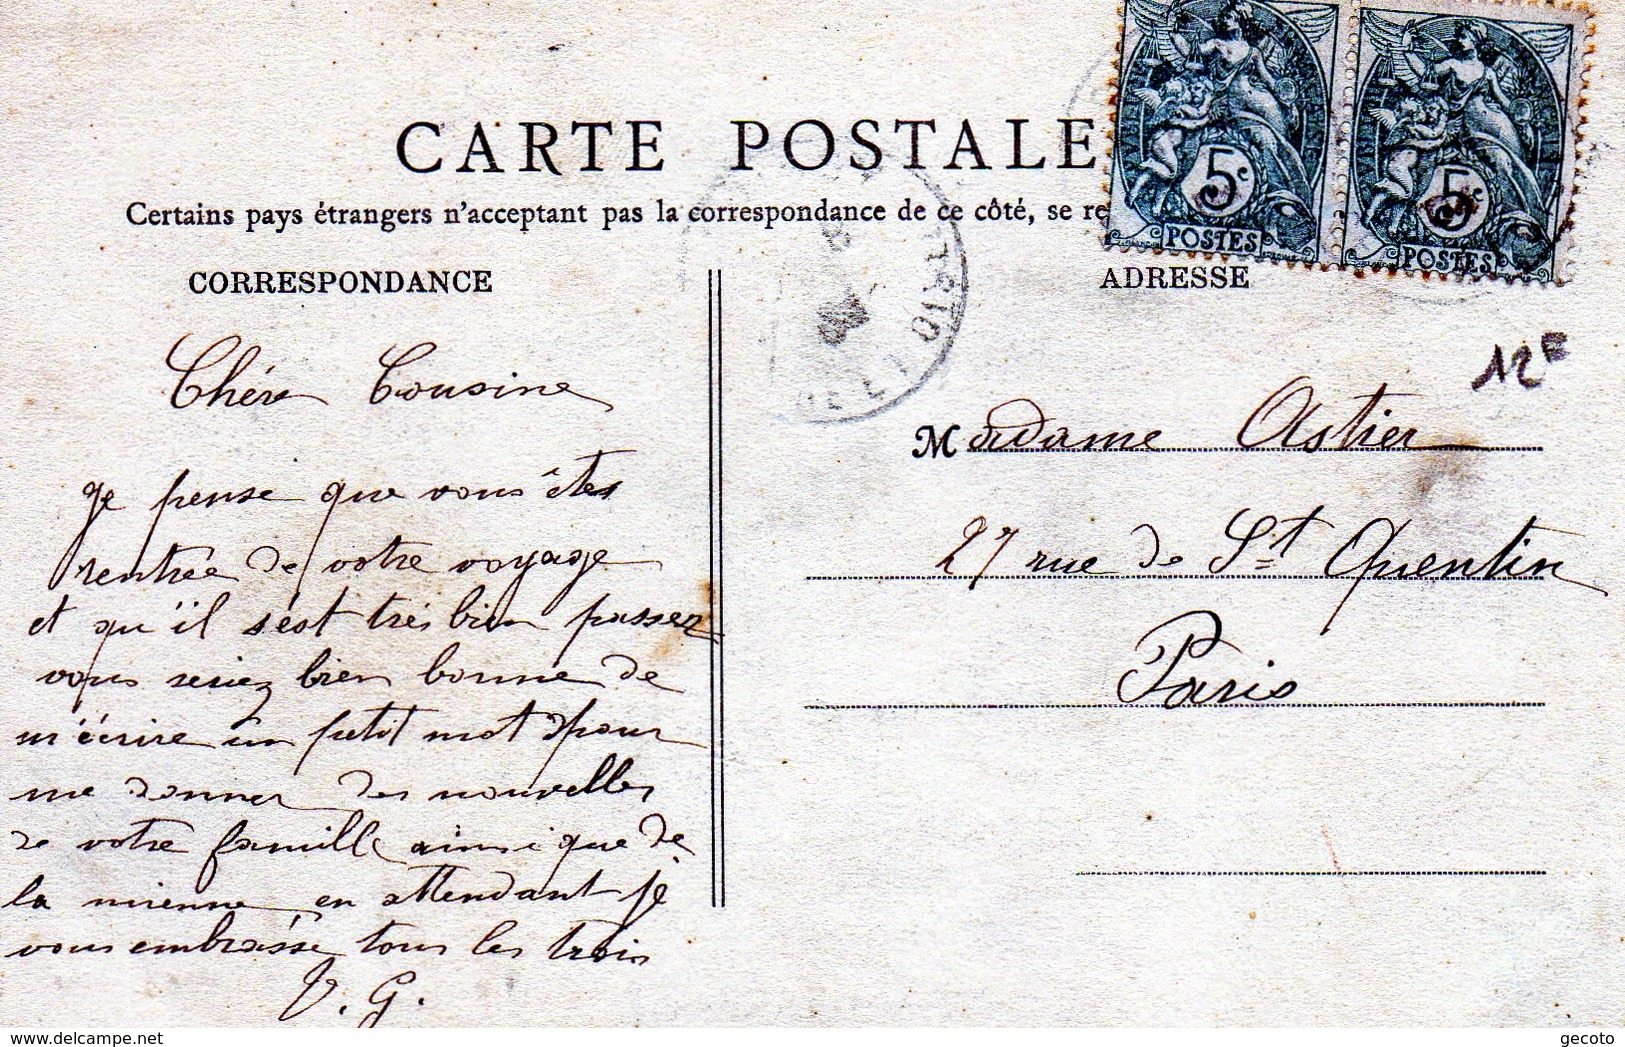 CARTE POSTALE
Certains pays étrangers n'acceptant pas la correspondance de ce côté, se re
CORRESPONDANCE
Chére Cousine
Je pense que vous êtes
rentrée de votre voyage
et qu'il s'est trés bien passer
vous seriez bien bonne de
m'écrire un petit mot pour
me donner des nouvelles
de votre famille ainsi que de
la mienne en attendant je
vous embrasse tous les trois
V. G.
5c
POSTES
5c
POSTES
ADRESSE
12E
Madame Astier
27 rue de St Quentin
Paris
delcampe.net
gecoto